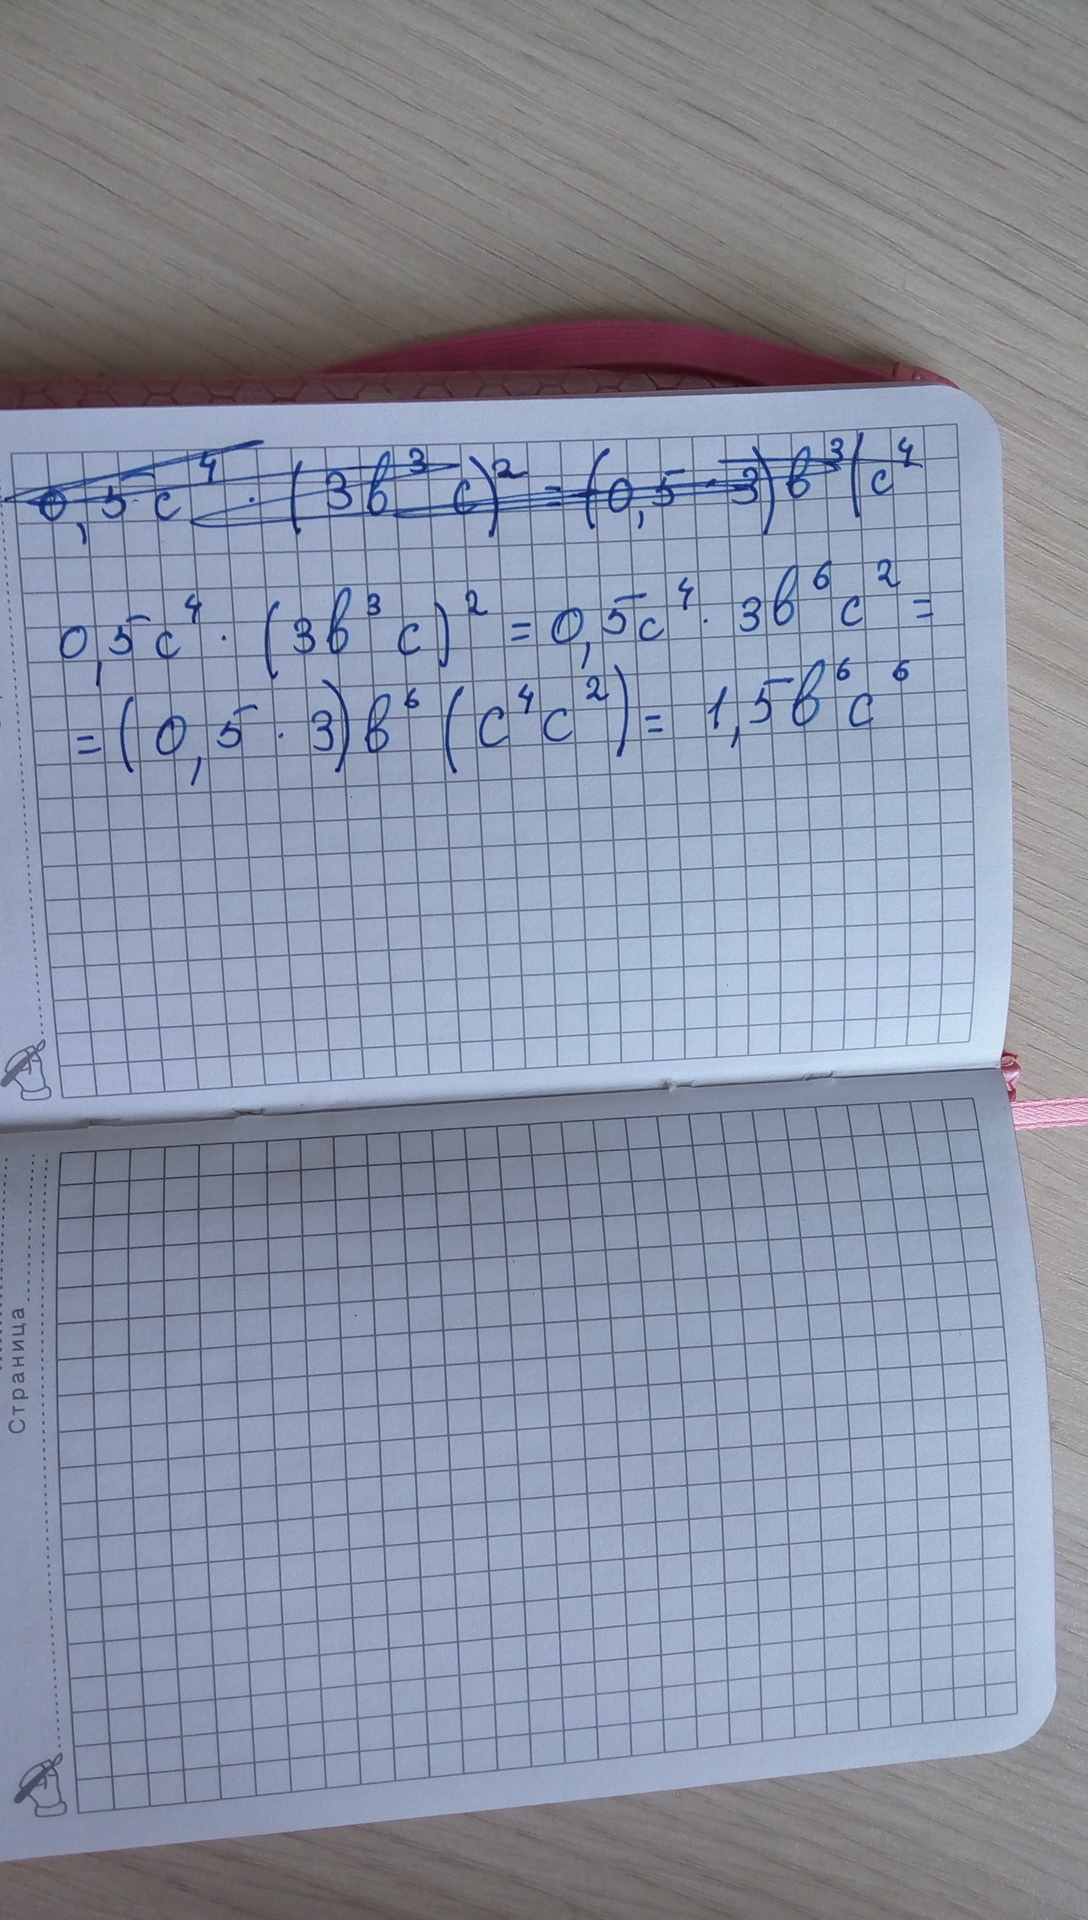 0,5c⁴ · (3в³ c)² = (0,5 · 3)в³(c⁴
0,5c⁴ · (3в³ c)² = 0,5c⁴ · 3в⁶ c² =
= (0,5 · 3)в⁶ (c⁴c²) = 1,5в⁶c⁶
Страница